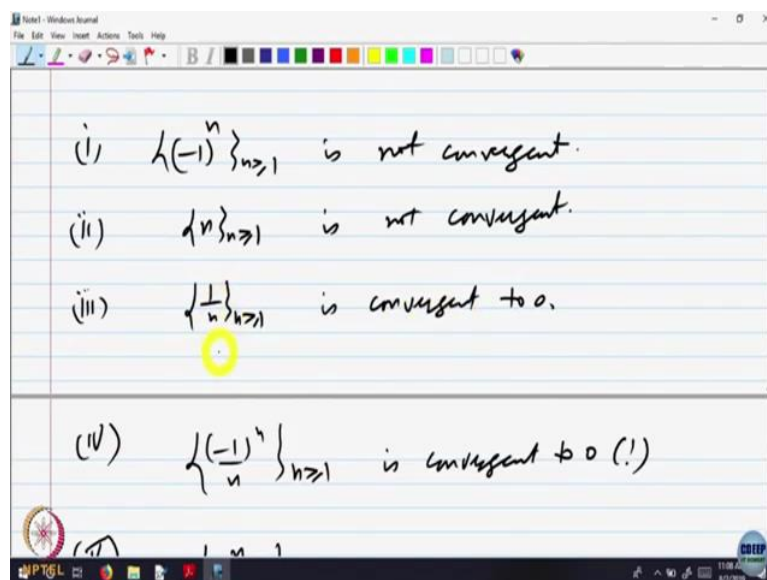 Note1 - Windows Journal
File Edit View Insert Actions Tools Help
B I
(i) {(-1)^n}_{n≥1} is not convergent.
(ii) {n}_{n≥1} is not convergent.
(iii) {1/n}_{n≥1} is convergent to 0.
(iv) {(-1)^n/n}_{n≥1} is convergent to 0 (!)
NPTEL
CDEEP